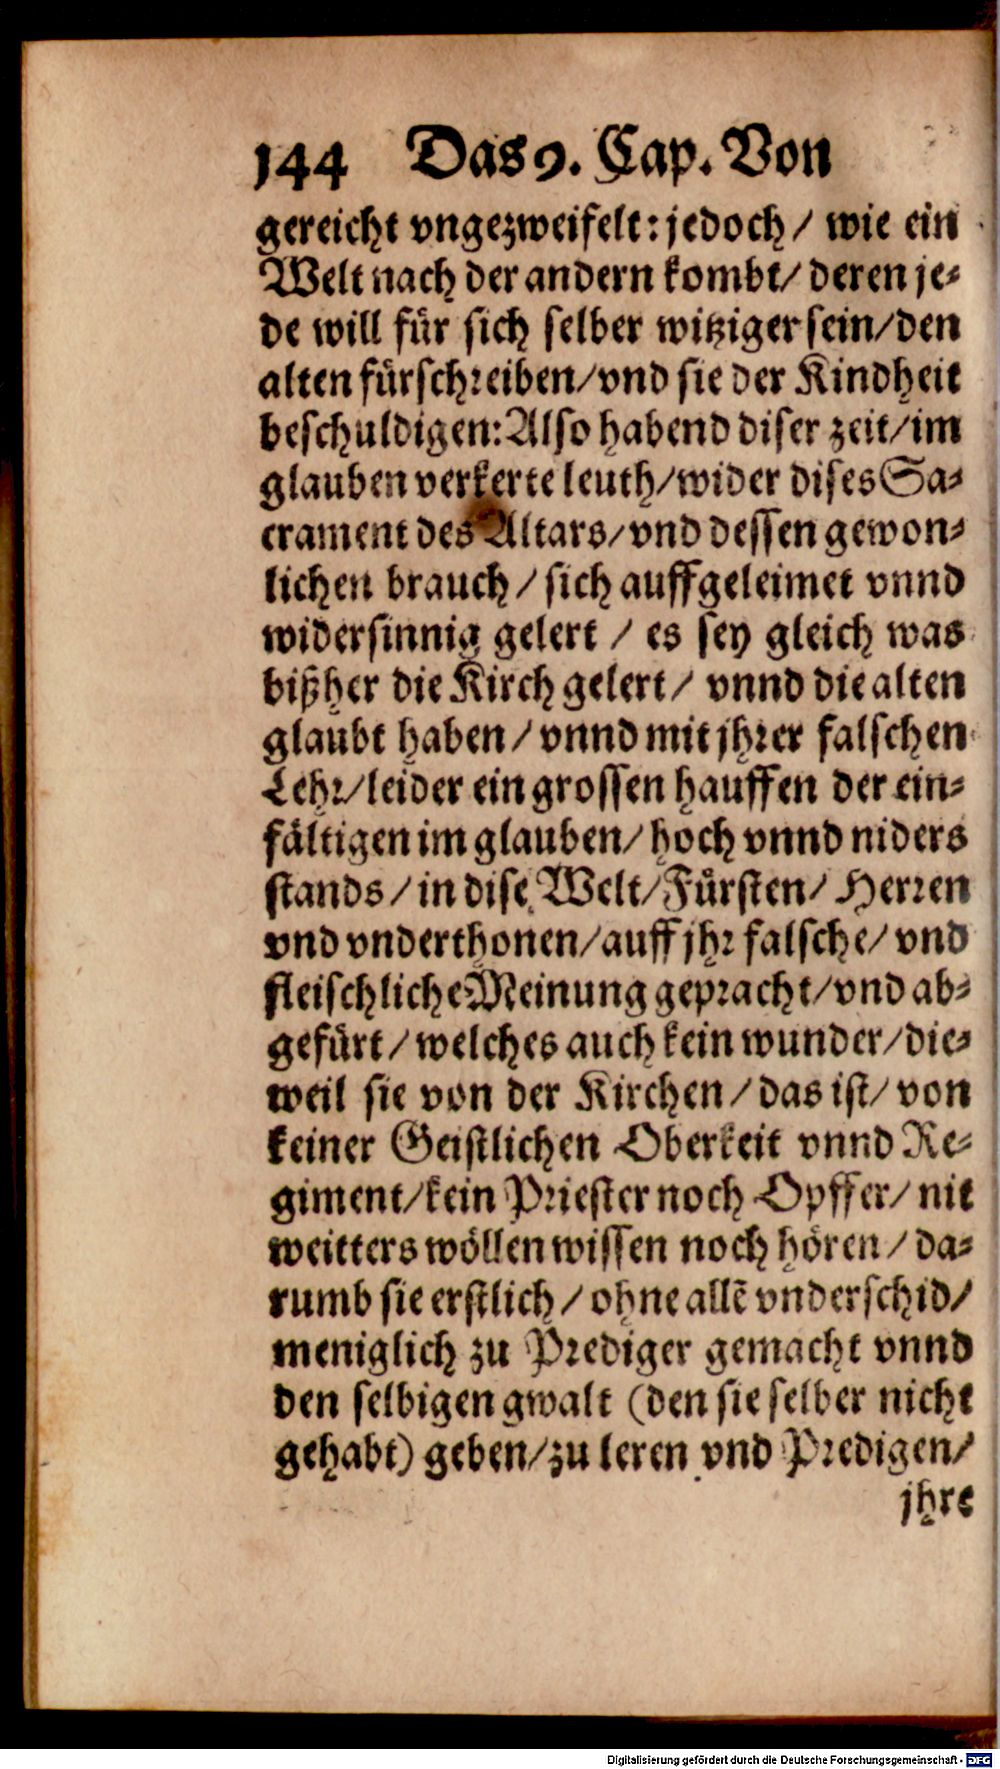 144 Das 9. Cap. Von
gereicht vngezweifelt: jedoch/ wie ein
Welt nach der andern kombt/ deren je-
de will für sich selber witziger sein/ den
alten fürschreiben/ vnd sie der Kindheit
beschuldigen: Also habend diser zeit/ im
glauben verkerte leuth/ wider dises Sa-
crament des Altars/ vnd dessen gewon-
lichen brauch/ sich auffgeleimet vnnd
widersinnig gelert / es sey gleich was
bißher die Kirch gelert/ vnnd die alten
glaubt haben/ vnnd mit jhrer falschen
Lehr/ leider ein grossen hauffen der ein-
fältigen im glauben/ hoch vnnd niders
stands/ in dise Welt/ Fürsten/ Herren
vnd vnderthonen/ auff jhr falsche/ vnd
fleischliche Meinung gepracht/ vnd ab-
gefürt/ welches auch kein wunder/ die-
weil sie von der Kirchen/ das ist/ von
keiner Geistlichen Oberkeit vnnd Re-
giment/ kein Priester noch Opffer/ nit
weitters wöllen wissen noch hören/ da-
rumb sie erstlich/ ohne allẽ vnderschid/
meniglich zu Prediger gemacht vnnd
den selbigen gwalt (den sie selber nicht
gehabt) geben/ zu leren vnd Predigen/
jhre
Digitalisierung gefördert durch die Deutsche Forschungsgemeinschaft - DFG